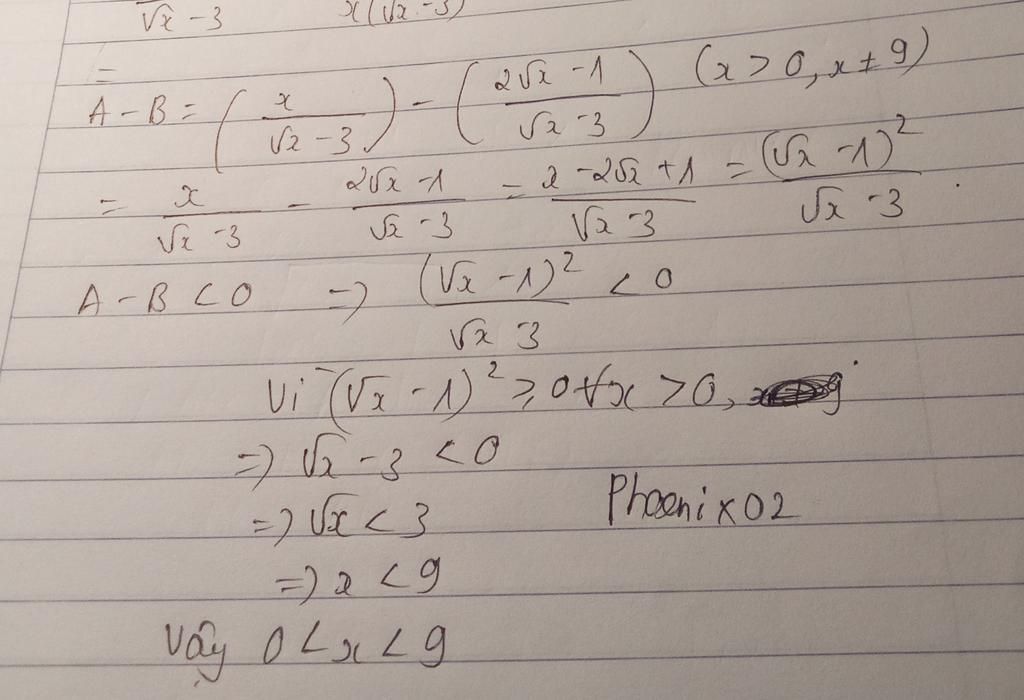 √x - 3   x(√x - 3)
=
A - B = (x / (√x - 3)) - ((2√x - 1) / (√x - 3)) (x > 0, x ≠ 9)
= x / (√x - 3) - (2√x - 1) / (√x - 3) = (x - 2√x + 1) / (√x - 3) = (√x - 1)² / (√x - 3).
A - B < 0 => (√x - 1)² / (√x 3) < 0
Vì (√x - 1)² ≥ 0 ∀x > 0,
=> √x - 3 < 0
=> √x < 3
Phoenix02
=> x < 9
Vậy 0 < x < 9